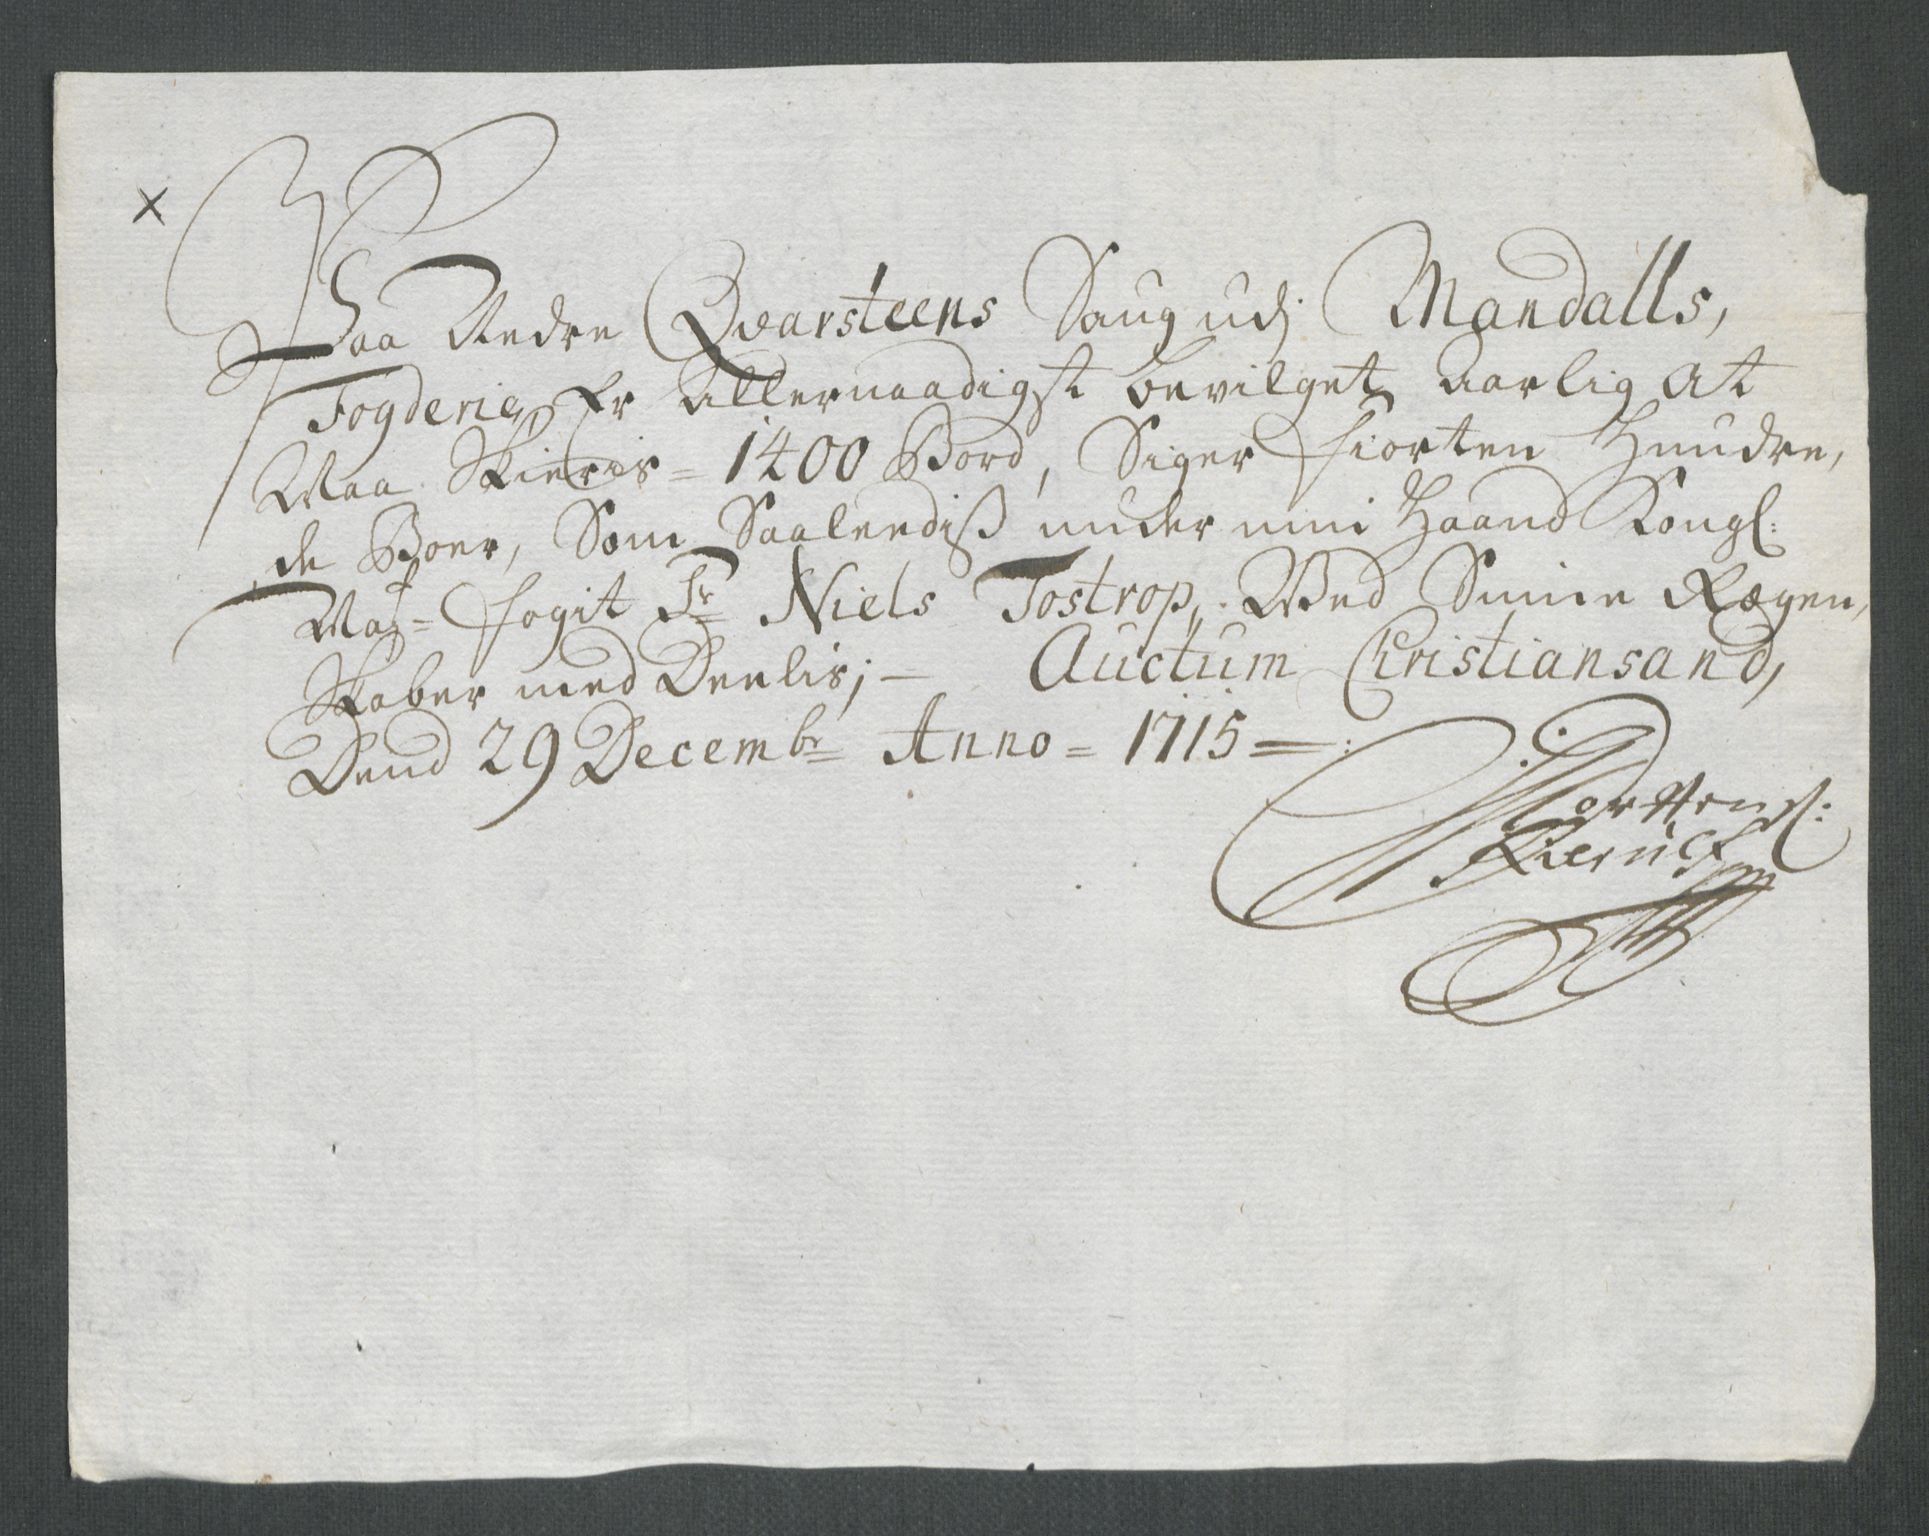 x
Paa Nedre Qvarsteens Saug udj Mandalls,
Fogderie, Er Allernaadigst bevilget Aarlig at
Maa Skieris = 1400 Bord, Siger fiorten Hundre,
de Boer, Som Saaleediß under min Haand Kongl:
Maj= fogit Sr Niels Tostrop, Wed Sinne Regen,
Skaber med Deelis; – Auctum Christiansand,
Dend 29 Decembr Anno = 1715 =:
Morttens: